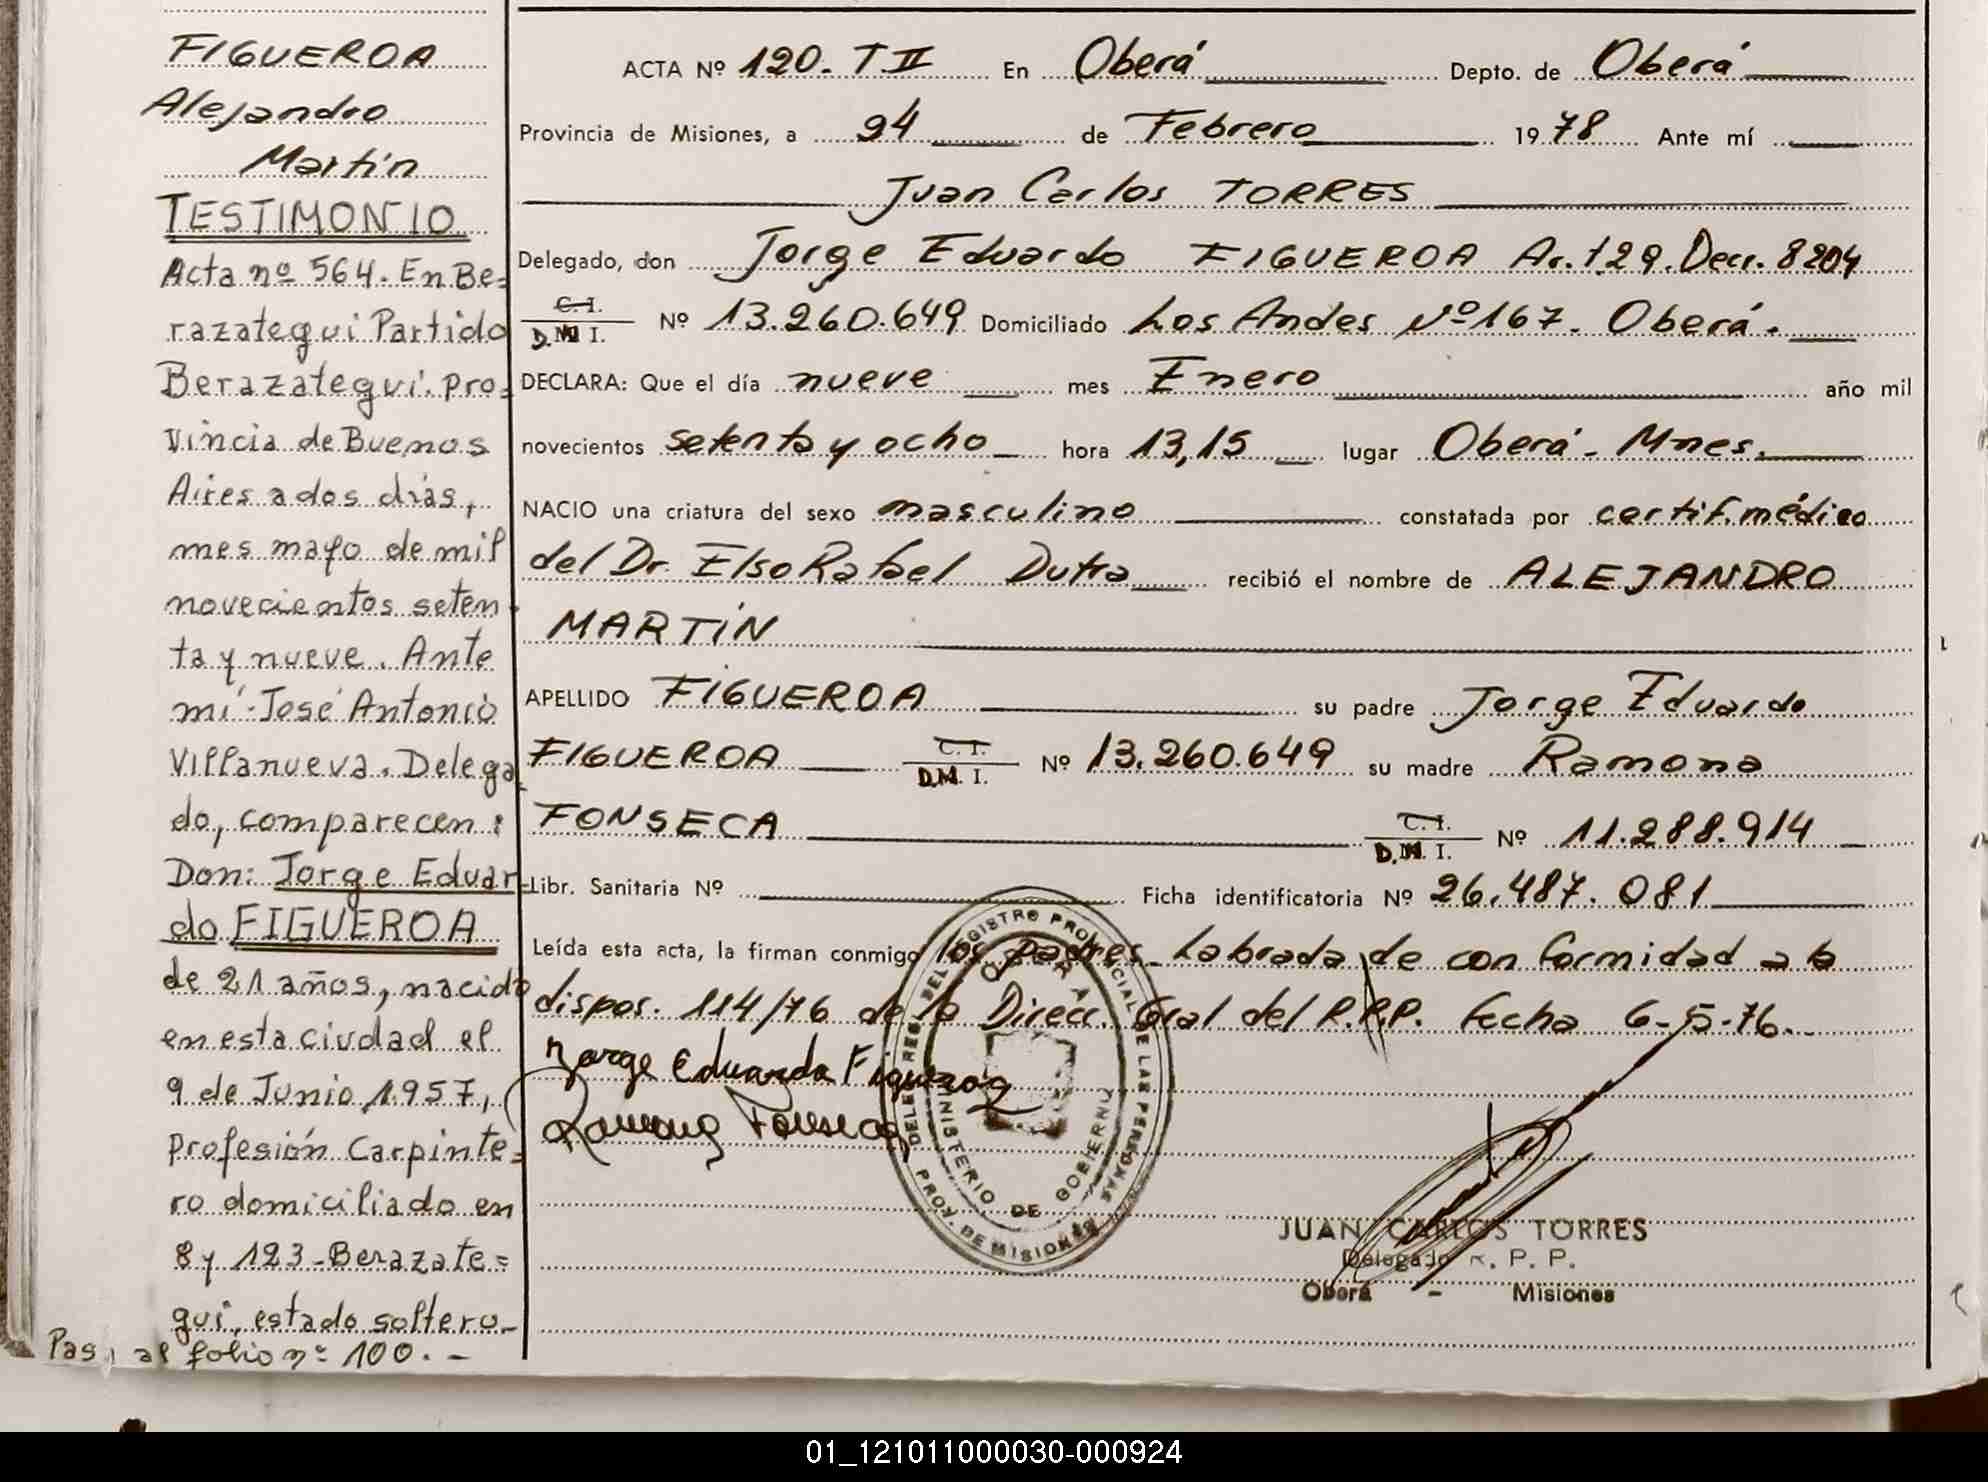 FIGUEROA
Alejandro
Martín
TESTIMONIO
Acta nº 564. En Be=
razategui Partido
Berazategui. Pro=
vincia de Buenos
Aires a dos días,
mes mayo de mil
novecientos seten
ta y nueve. Ante
mí José Antonio
Villanueva. Delega
do, comparecen:
Don: Jorge Eduar=
do FIGUEROA
de 21 años, nacido
en esta ciudad el
9 de Junio 1957,
Profesión Carpinte=
ro domiciliado en
8 y 123 - Berazate=
gui, estado soltero_
al folio nº 100. -
ACTA Nº 120. T II En Oberá Depto. de Oberá
Provincia de Misiones, a 24 de Febrero 1978 Ante mí
Juan Carlos TORRES
Delegado, don Jorge Eduardo FIGUEROA Ar. t. 29. Decr. 8204
C. I.
D. N. I. Nº 13.260.649 Domiciliado Los Andes Nº 167. Oberá.
DECLARA: Que el día nueve mes Enero año mil
novecientos setenta y ocho hora 13,15 lugar Oberá - Mnes.
NACIO una criatura del sexo masculino constatada por certif. médico
del Dr. Elso Rafael Dutra recibió el nombre de ALEJANDRO
MARTÍN
APELLIDO FIGUEROA su padre Jorge Eduardo
FIGUEROA C. I. D.N. I. Nº 13.260.649 su madre Ramona
FONSECA C. I. D.N. I. Nº 11.288.914
Libr. Sanitaria Nº Ficha identificatoria Nº 26.487.081
Leída esta acta, la firman conmigo los padres. Labrada de conformidad a la
dispos. 114/76 de la Direcc. Gral del R.P.P. Fecha 6-5-76.
Jorge Eduardo Figueroa
Ramona Fonseca
DELEG. DEL REGISTRO PROVINCIAL DE LAS PERSONAS
OBERA
MINISTERIO DE GOBIERNO
PROV. DE MISIONES
JUAN CARLOS TORRES
Delegado R. P. P.
Oberá - Misiones
01_121011000030-000924